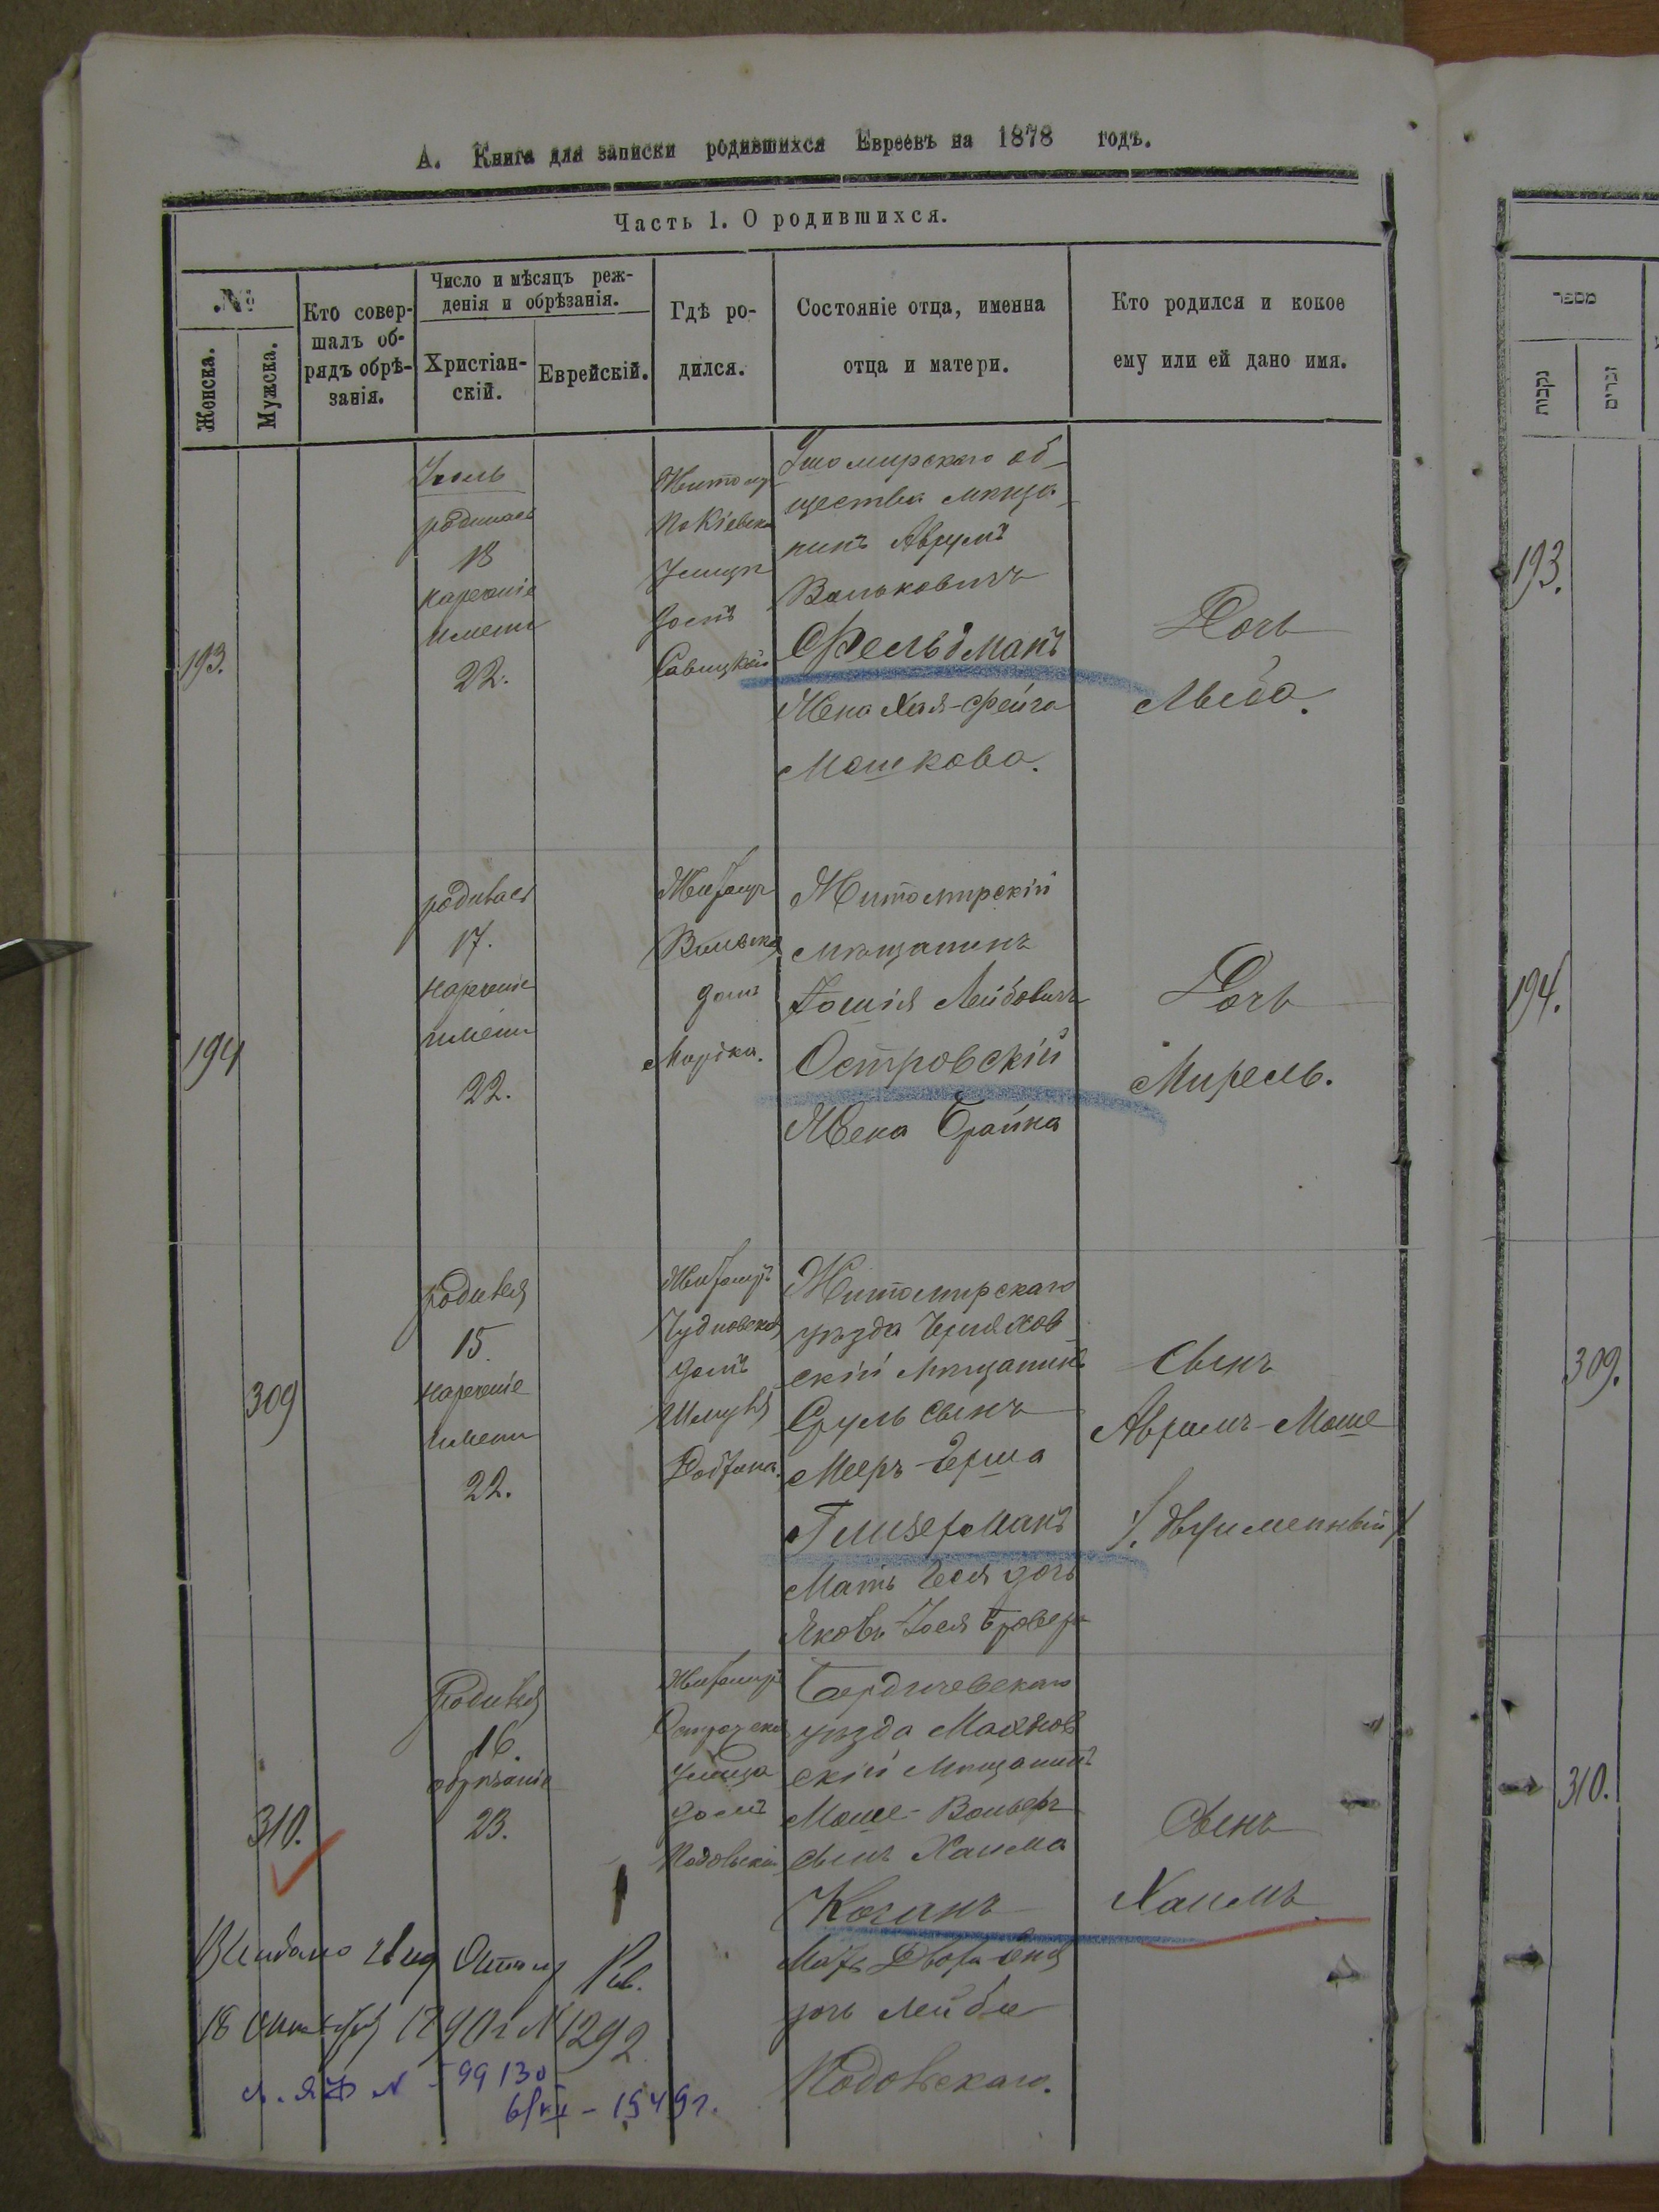 А. Книга для записки родившихся Евреевъ на 1878 годъ.
Часть 1. О родившихся.
№
Женска.
Мужска.
Кто совер-
шалъ об-
рядъ обрѣ-
занія.
Число и мѣсяцъ реж-
денія и обрѣзанія.
Христіан-
скій.
Еврейскій.
Гдѣ ро-
дился.
Состояніе отца, именна
отца и матери.
Кто родился и кокое
ему или ей дано имя.
193.
родилась
18
нареченіе
имени
22.
Житомир
по Кіевск
улицѣ
домъ
общества мѣща
нинъ Аврумъ
Вольковичъ
Фельдманъ
Жена Хая-Фейга
Мошкова.
Дочь
194
родилась
17.
нареченіе
имени
22.
Житомир
домъ
Житомирскій
мѣщанинъ
Лейбовичъ
Островскій
Жена Брайна
Дочь
Мирель.
309
родился
15.
нареченіе
имени
22.
Житомиръ
Чудновская
домъ
Житомирскаго
уѣзда Черняхов
скій мѣщанинъ
Сруль сынъ
Мееръ-Герша
Глизерманъ
Мать
дочь
Сынъ
Аврамъ-Моше
310.
родился
16.
обрѣзаніе
23.
Житомиръ
улица
домъ
Подольскій
Бердичевскаго
уѣзда Махнов
скій мѣщанинъ
Моше-Вольфъ
сынъ Хаима
Коганъ
Мать Двора
дочь Лейбы
Подольскаго.
Сынъ
Хаимъ
18
1890 г №1292
№ 99130
1949г.
מספר
נקבות
זכרים
193.
194.
309.
310.